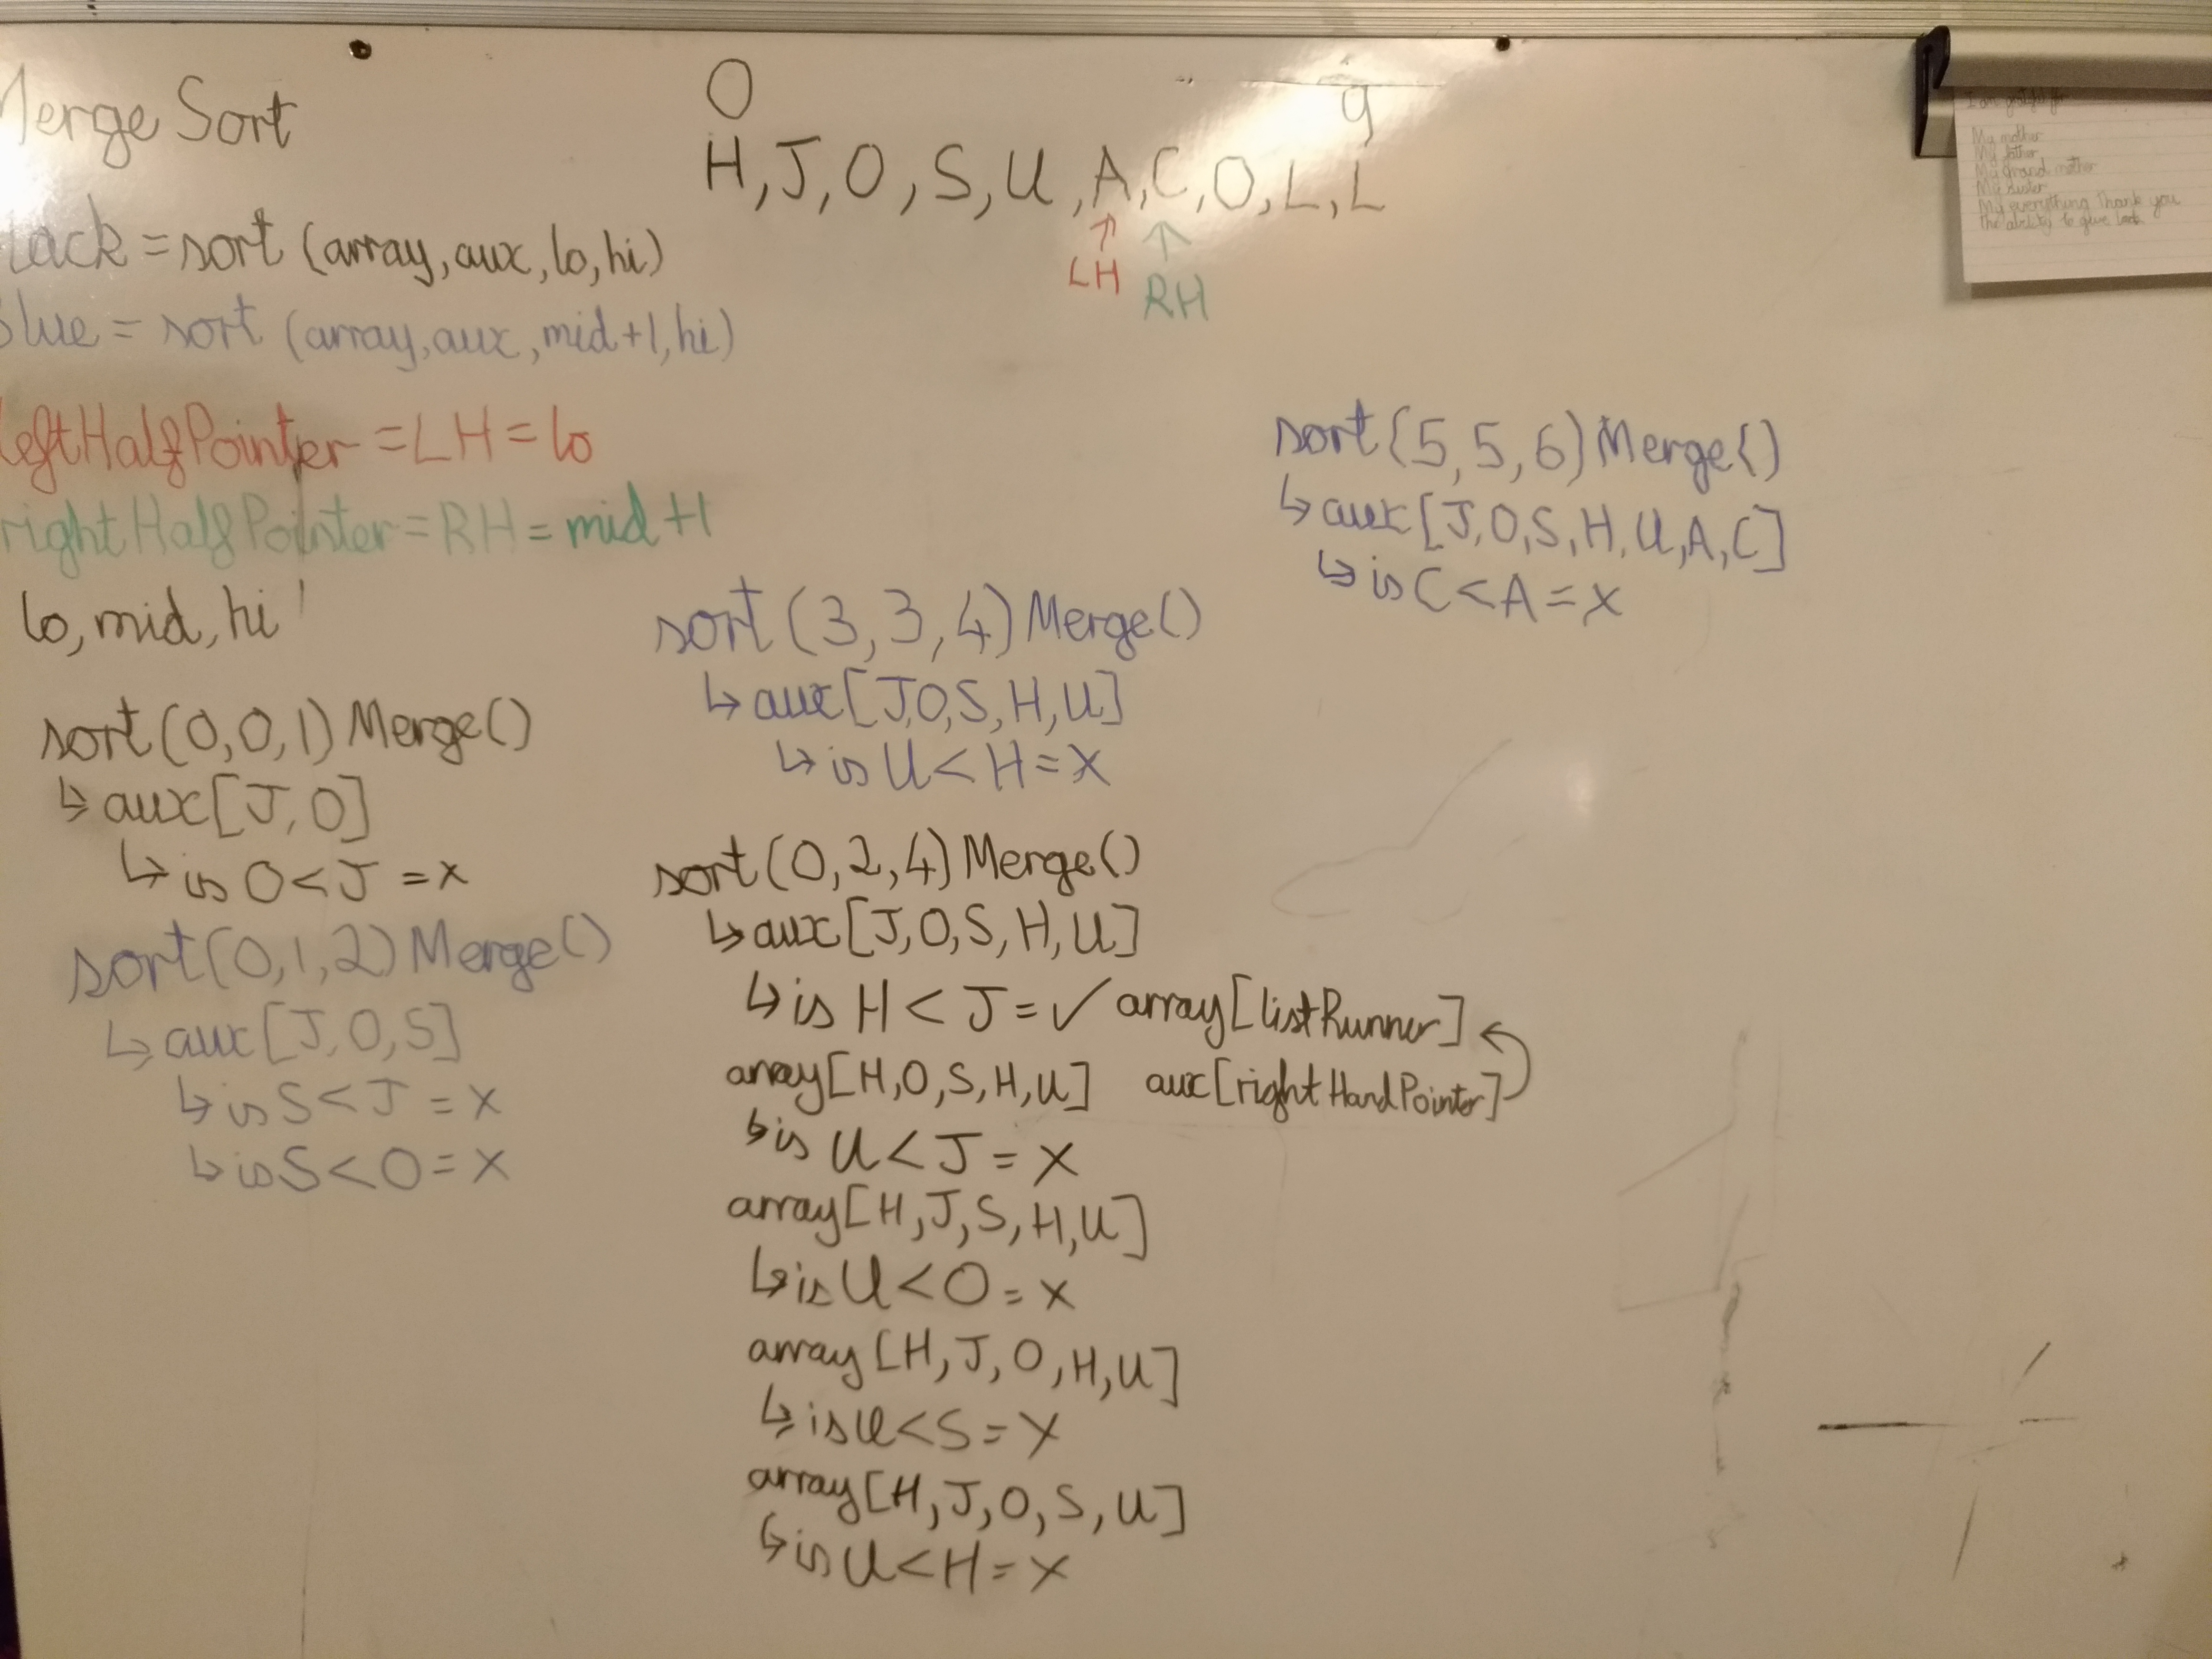 Merge Sort
0 9
H,J,O,S,U,A,C,O,L,L
LH RH
lack = sort (array,aux,lo,hi)
Blue = sort (array,aux,mid+1,hi)
leftHalfPointer = LH = lo
rightHalfPointer = RH = mid +1
lo, mid, hi
sort(0,0,1) Merge()
↳ aux[J,O]
↳ is O < J = x
sort(0,1,2) Merge()
↳ aux[J,O,S]
↳ is S < J = x
↳ is S < O = x
sort (3,3,4) Merge()
↳ aux[J,O,S,H,U]
↳ is U < H = x
sort(0,2,4) Merge()
↳ aux[J,O,S,H,U]
↳ is H < J = ✓ array[listRunner]
array[H,O,S,H,U] aux[rightHandPointer]
↳ is U < J = x
array[H,J,S,H,U]
↳ is U < O = x
array[H,J,O,H,U]
↳ is U < S = x
array[H,J,O,S,U]
↳ is U < H = x
sort(5,5,6) Merge()
↳ aux[J,O,S,H,U,A,C]
↳ is C < A = x
I am grateful for
My mother
My father
My grand mother
My sister
My everything thank you
the ability to give back